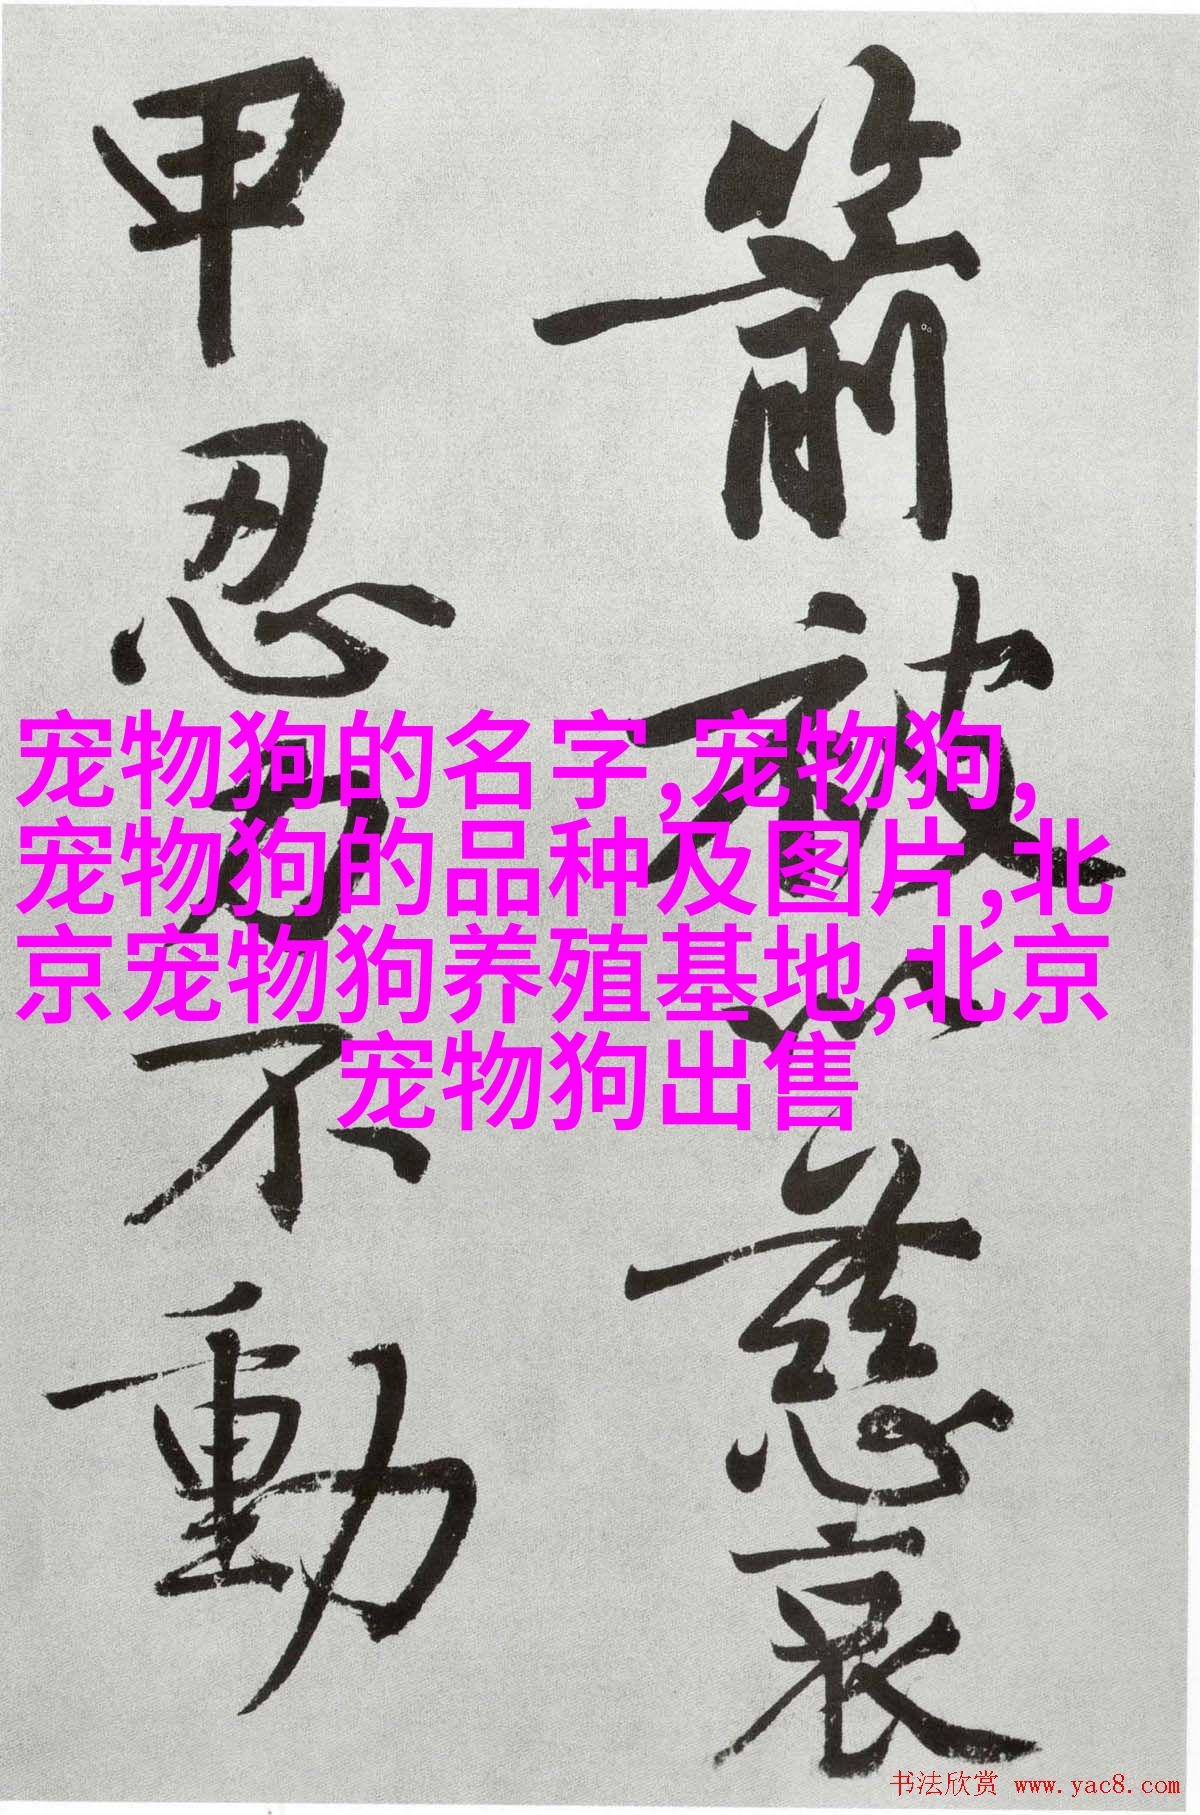 箭被以慈哀
甲忍力不動
宠物狗的名字,宠物狗,
宠物狗的品种及图片,北
京宠物狗养殖基地,北京
宠物狗出售
书法欣赏 www.yac8.com